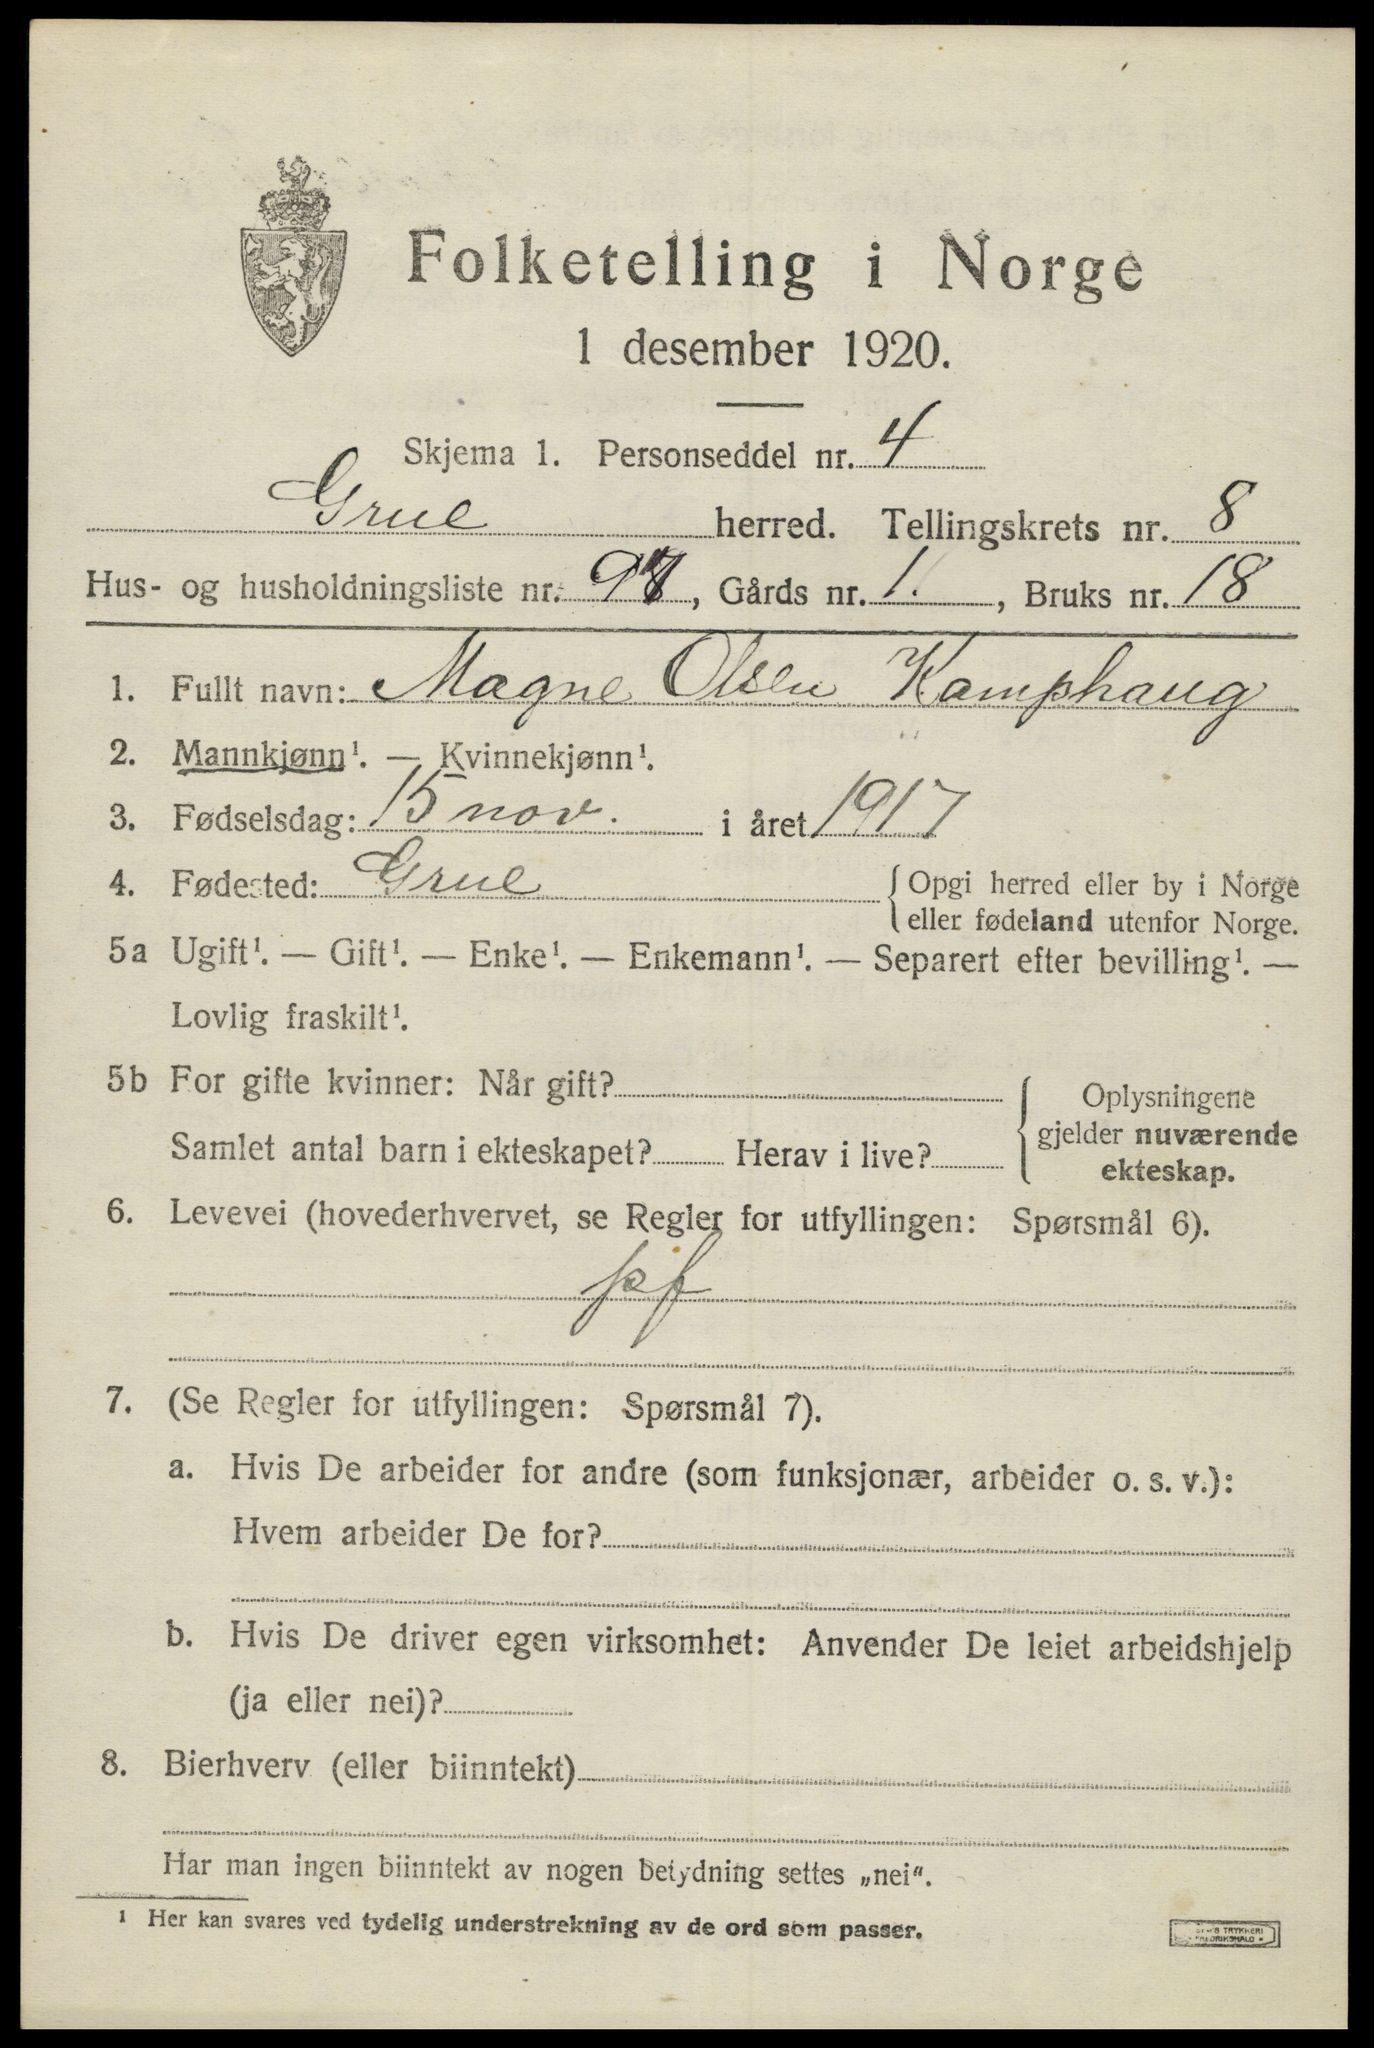 Folketelling i Norge
1 desember 1920.
Skjema 1. Personseddel nr. 4
Grue herred. Tellingskrets nr. 8
Hus- og husholdningsliste nr. , Gårds nr. 1. , Bruks nr. 18
1. Fullt navn: Magne Olsen Kamphaug
2. Mannkjønn¹. — Kvinnekjønn¹.
3. Fødselsdag: 15 nov. i året 1917
4. Fødested: Grue {Opgi herred eller by i Norge
eller fødeland utenfor Norge.
5a Ugift¹. — Gift¹. — Enke¹. — Enkemann¹. — Separert efter bevilling¹. —
Lovlig fraskilt¹.
5b For gifte kvinner: Når gift? Oplysningene
gjelder nuværende
Samlet antal barn i ekteskapet? Herav i live?
ekteskap.
6. Levevei (hovederhvervet, se Regler for utfyllingen: Spørsmål 6).
7. (Se Regler for utfyllingen: Spørsmål 7).
a. Hvis De arbeider for andre (som funksjonær, arbeider o. s. v.):
Hvem arbeider De for?
b. Hvis De driver egen virksomhet: Anvender De leiet arbeidshjelp
(ja eller nei)?
8. Bierhverv (eller biinntekt)
Har man ingen biinntekt av nogen betydning settes „nei“.
¹ Her kan svares ved tydelig understrekning av de ord som passer.